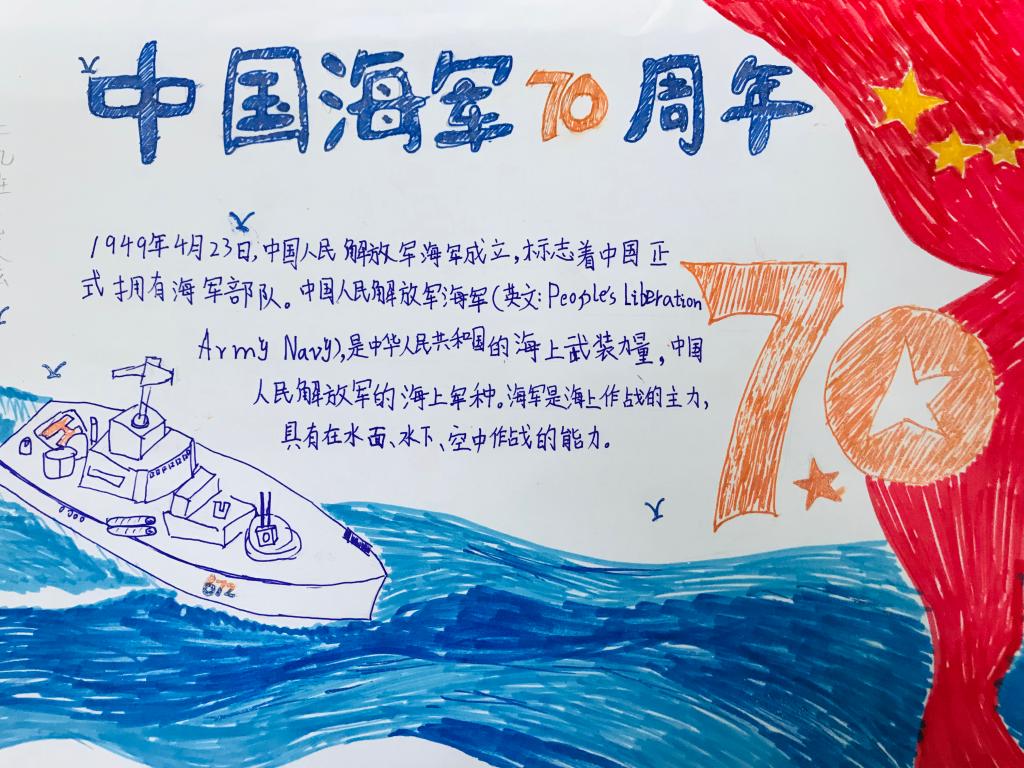 中国海军70周年
1949年4月23日,中国人民解放军海军成立,标志着中国正
式拥有海军部队。中国人民解放军海军(英文:People's Liberation
Army Navy),是中华人民共和国的海上武装力量,中国
人民解放军的海上军种。海军是海上作战的主力,
具有在水面、水下、空中作战的能力。
70
872